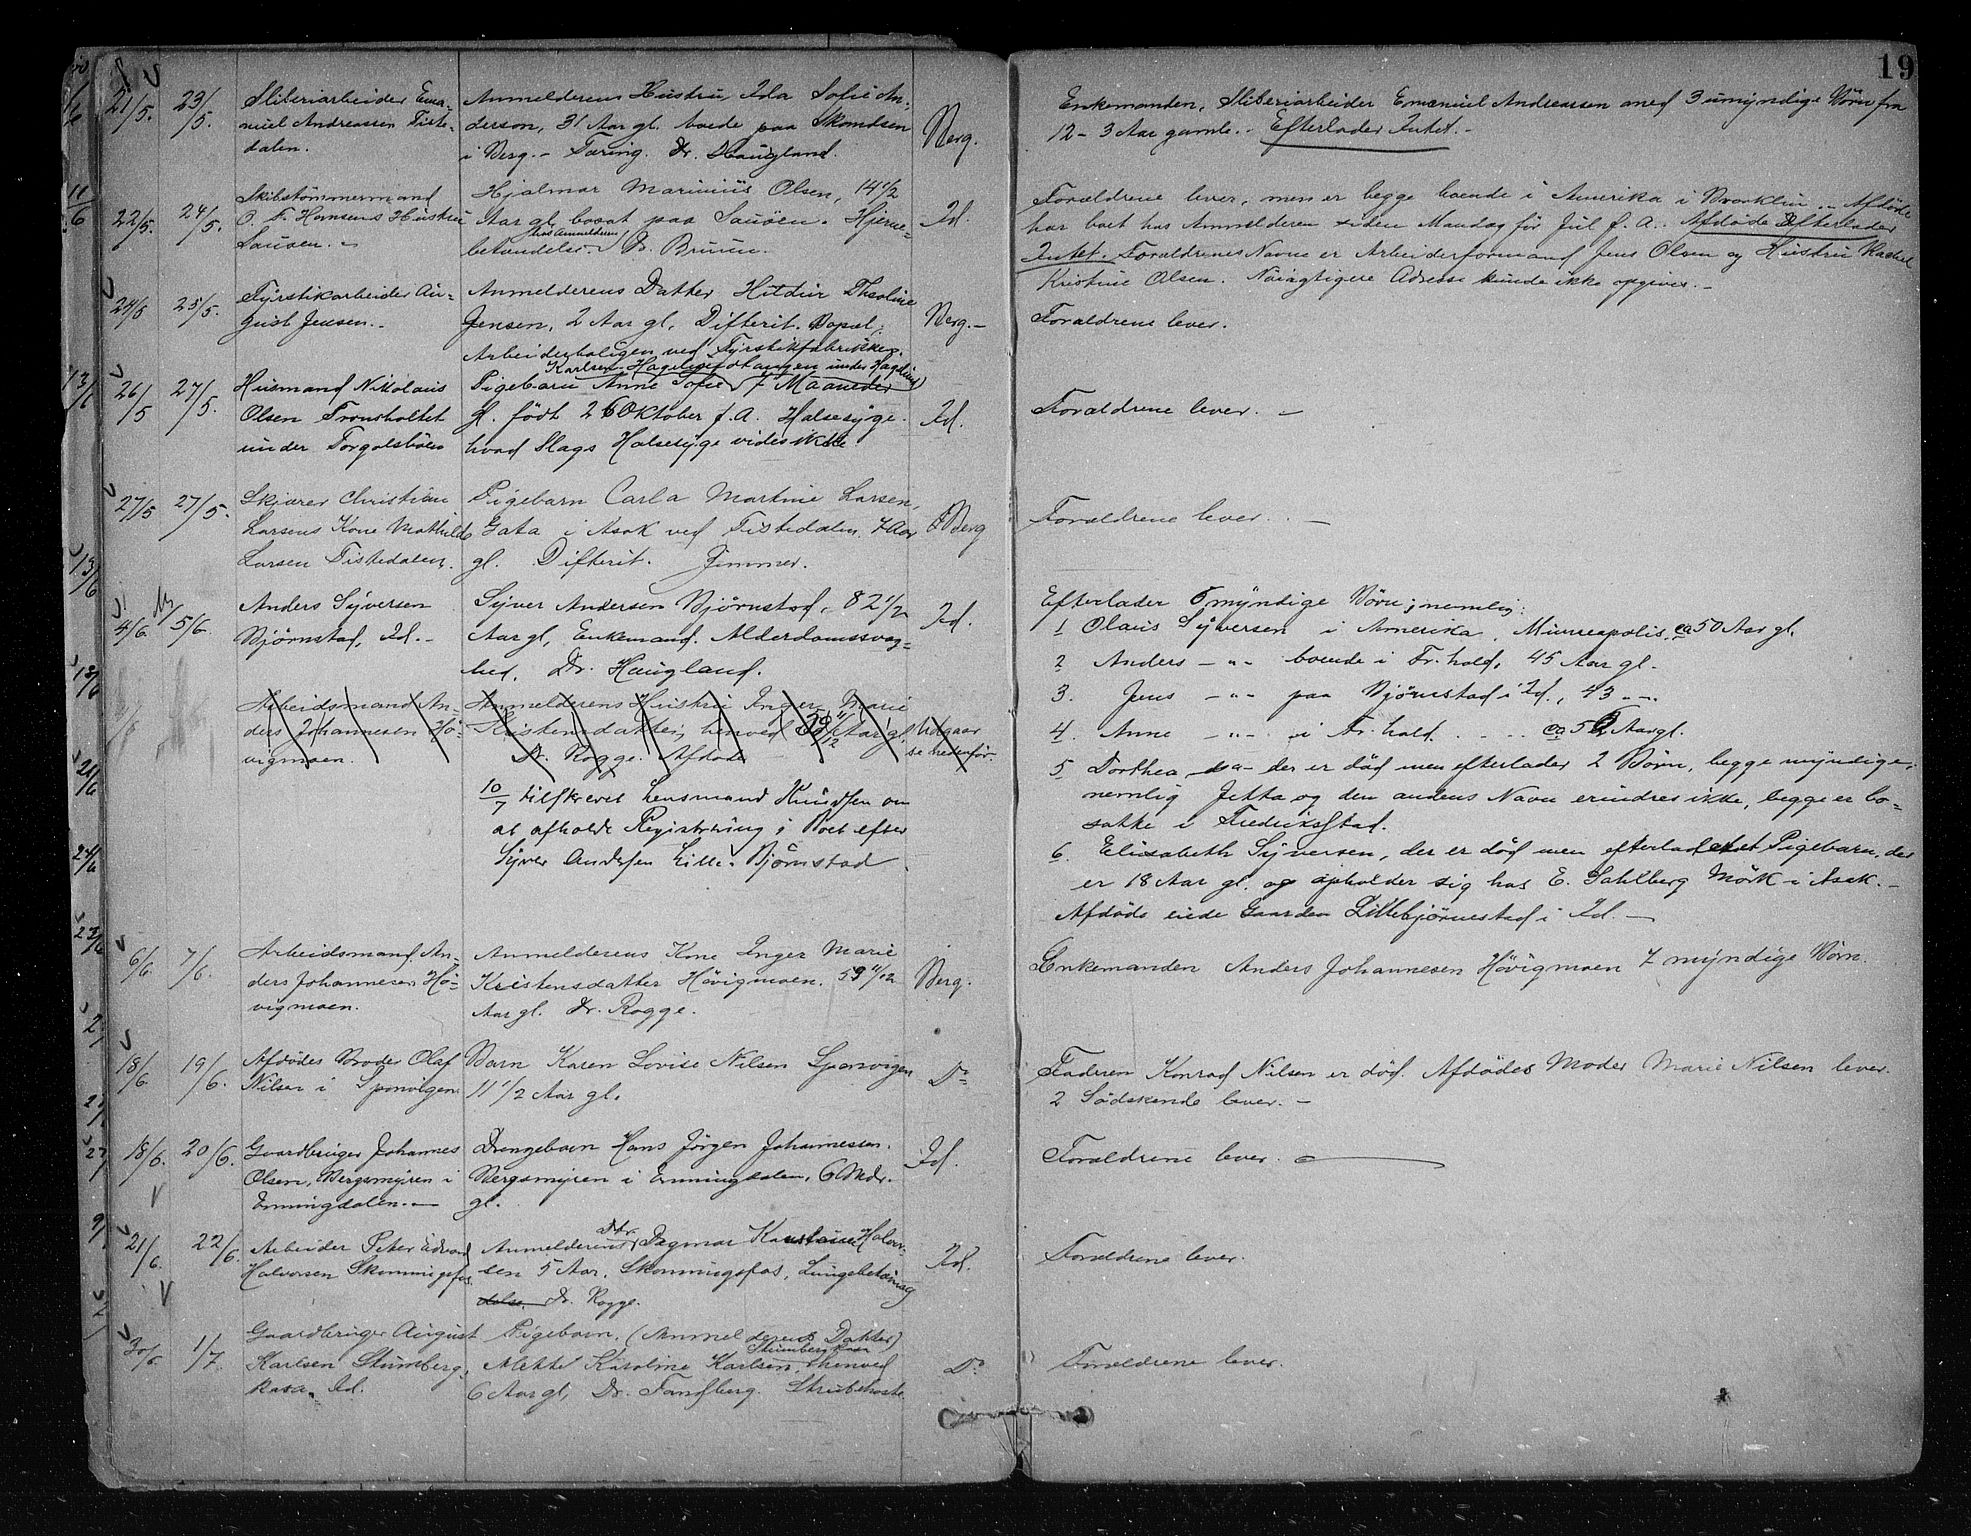 19
21/5. 23/5. Sliberiarbeider Ema-
nuel Andreassen Tiste-
dalen.
Anmelderens Hustru Ida Sofie An-
derson, 31 Aar gl. boede paa Skondsen
i Berg. - Tæring. Dr. Haugland.
Berg.
Enkemanden, Sliberiarbeider Emanuel Andreassen med 3 umyndige Børn fra
12 - 3 Aar gamle. Efterlader Intet. -
22/5. 24/5. Skibstømmermand
O. F. Hansens Hustru
Sauøen. -
Hjalmar Marinius Olsen, 14 1/2
Aar gl. bosat paa Sauøen. Hjerne-
hos Anmelderen
betændelse. Dr. Bruun.
Id.
Forældrene lever, men er begge boende i Amerika i Brooklin. - Afdøde
har boet hos Anmelderen siden Mandag før Jul f. A. Afdøde Efterlader
Intet. Forældrenes Navne er Arbeiderformand Jens Olsen og Hustru Rachel
Kristine Olsen. Nøiagtigere Adresse kunde ikke opgives. -
24/5 25/5. Fyrstikarbeider Au-
gust Jensen. -
Anmelderens Datter Hildur Theoline
Jensen, 2 Aar gl. Difterit. Bopæl:
Arbeiderboligen ved Fyrstikfabrikken.
Berg. -
Forældrene lever.
26/5 27/5. Husmand Nikolaus
Olsen Tronsholtet
under Torgalsbøen
Karlsen
Pigebarn Anne Sofie 7 Maaneder
gl. født 26 Oktober f. A. Halsesyge.
hvad Slags Halsesyge vides ikke
Id.
Forældrene lever. -
27/5 27/5. Skjærer Christian
Larsens Kone Mathilde
Larsen Tistedalen.
Pigebarn Carla Martine Larsen,
Gata i Asak ved Tistedalen, 7 Aar
gl. Difterit. Zimmer.
Berg
Forældrene lever. -
4/6. 5/6. Anders Syversen
Bjørnstad, Id. -
Syver Andersen Bjørnstad, 82 1/2
Aar gl, Enkemand. Alderdomssvag-
hed. Dr. Haugland.
Id.
Efterlader 5 myndige Børn, nemlig:
1 Olaus Syversen i Amerika, Minneapolis, ca 50 Aar gl.
2 Anders - " - boende i Fr.hald, 45 Aar gl.
3. Jens - " - paa Bjørnstad i Id., 43 - " -
4. Anne - " - i Fr.hald. ca 52 Aar gl.
5 Dorthea, der er død men efterlader 2 Børn, begge myndige,
nemlig Jetta og den andens Navn erindres ikke, begge er bo-
satte i Fredriksstad.
6. Elisabeth Syversen, der er død men efterlader et Pigebarn, der
er 18 Aar gl. og opholder sig hos E. Sahlberg Mørk i Asak. -
Afdøde eiede Gaarden Lillebjørnestad i Id. -
Arbeidsmand An-
ders Johannesen Hø-
vigmoen.
Anmelderens Hustru Inger Marie
Kristensdatter, henved 59 11/12 Aar gl.
Dr. Rogge. Afdøde
Udgaar
se nedenfor.
10/7 tilskrevet Lensmand Knudsen om
at afholde Registrering i Boet efter
Syver Andersen Lille-Bjørnstad.
6/6. 7/6. Arbeidsmand An-
ders Johannesen Hø-
vigmoen.
Anmelderens Kone Inger Marie
Kristensdatter Høvigmoen. 59 11/12
Aar gl. Dr. Rogge.
Berg.
Enkemanden Anders Johannesen Høvigmoen 7 myndige Børn.
18/6. 19/6. Afdødes Broder Olaf
Nilsen i Sponvigen
Barn Karen Lovise Nilsen Sponvigen
11 1/2 Aar gl.
Do
Faderen Konrad Nilsen er død. Afdødes Moder Marie Nilsen lever.
2 Sødskende lever. -
18/6. 20/6. Gaardbruger Johannes
Olsen, Bergsmyren i
Enningdalen. -
Drengebarn Hans Jørgen Johannessen.
Bergsmyren i Enningdalen, 6 Mdr.
gl.
Id.
Forældrene lever.
21/6. 22/6. Arbeider Peter Edvard
Halvorsen Skonningsfos.
Dtr.
Anmelderens Dagmar Halvor-
sen 5 Aar. Skonningsfos, Lungebetænd
delse. Dr. Rogge.
Id.
Forældrene lever.
30/6 1/7. Gaardbruger August
Karlsen Stumberg-
kasa. Id.
Pigebarn. (Anmelderens Datter)
Stumbergkasa
Alette Karoline Karlsen, henved
6 Aar gl, Dr. Tandberg. Strubehoste
Do
Forældrene lever.